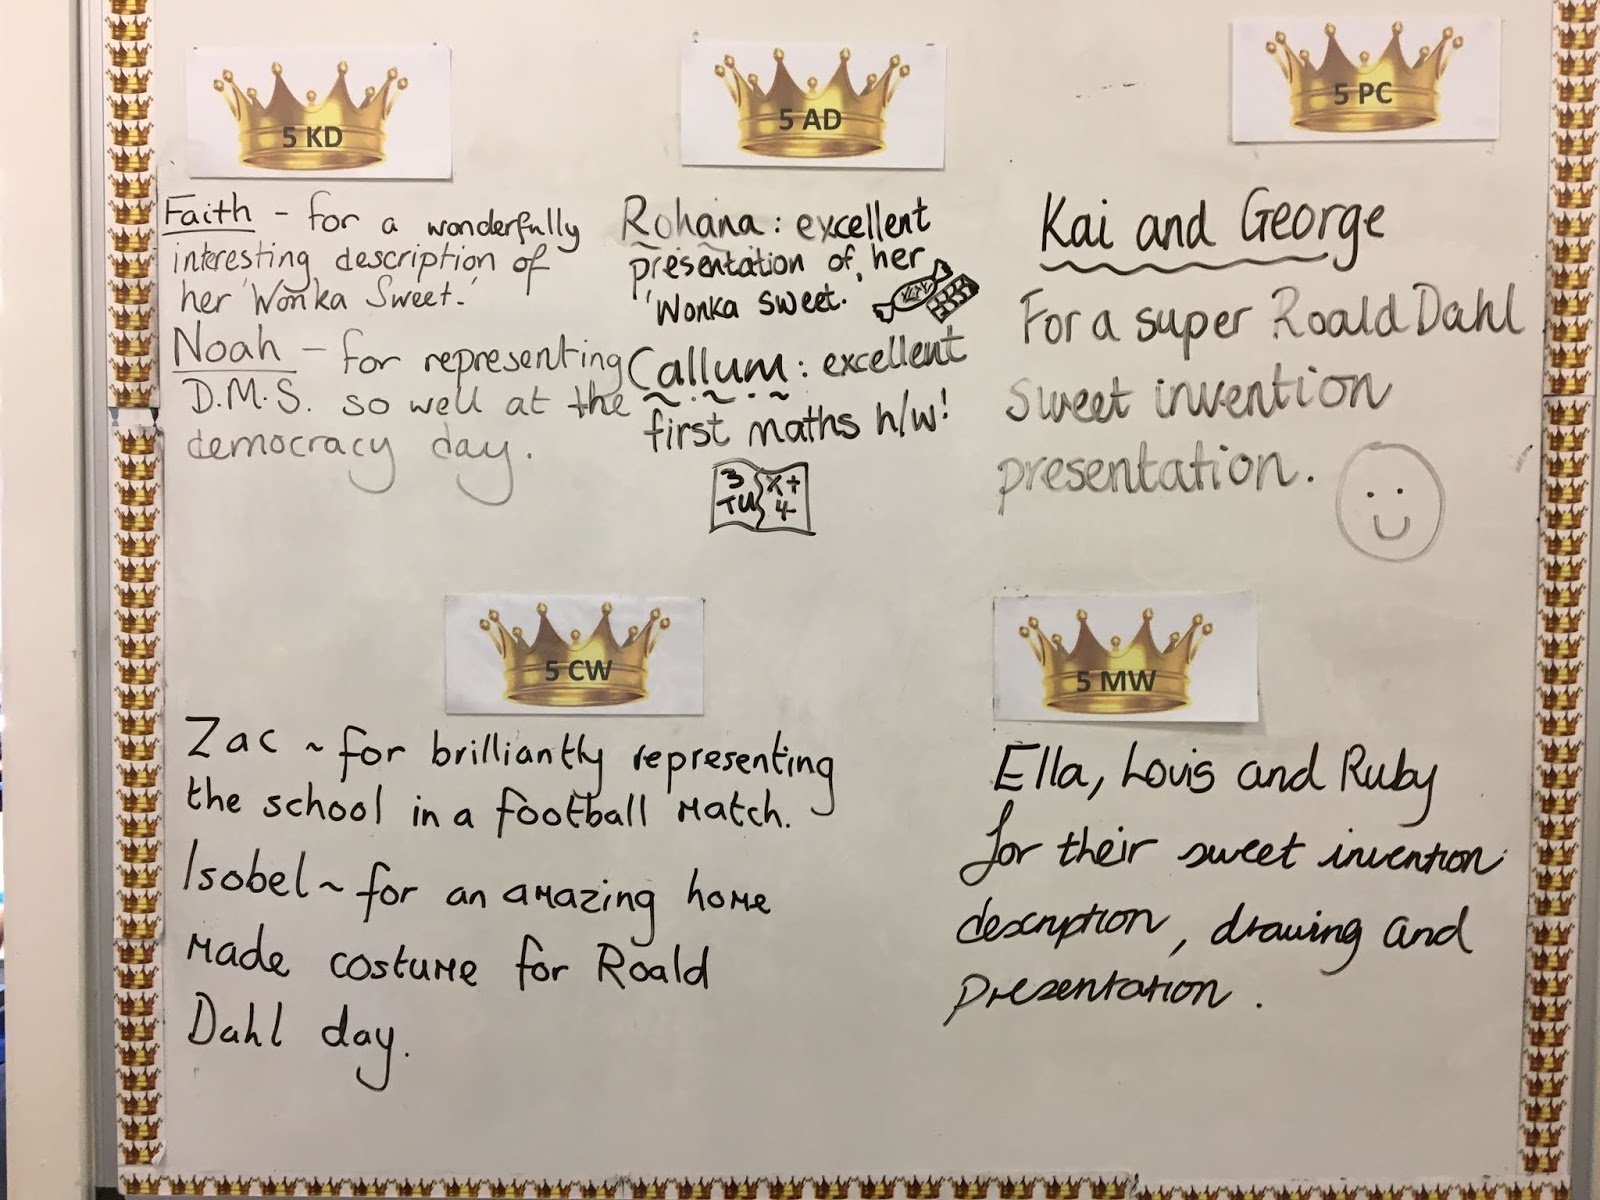 5 KD
Faith - for a wonderfully
interesting description of
her 'Wonka Sweet.'
Noah - for representing
D.M.S. so well at the
democracy day.
5 AD
Rohana: excellent
presentation of her
'Wonka sweet.'
Callum: excellent
first maths h/w!
3 x+
TU 4
5 PC
Kai and George
For a super Roald Dahl
sweet invention
presentation.
5 CW
Zac ~ for brilliantly representing
the school in a football match.
Isobel ~ for an amazing home
made costume for Roald
Dahl day.
5 MW
Ella, Louis and Ruby
for their sweet invention
description, drawing and
presentation.